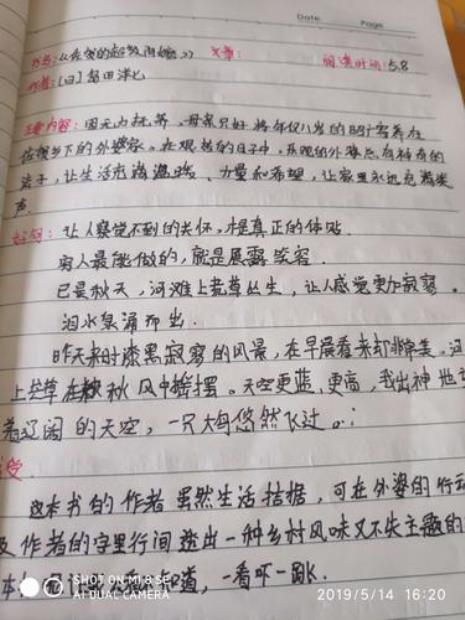 Date. Page
书名:《佐贺的超级阿嬷》 文章: 阅读时间:5.8
作者:[日]岛田洋七
主要内容:因无力抚养,母亲只好将年仅八岁的昭广寄养在
佐贺乡下的外婆家。在艰苦的日子中,乐观的外婆总有神奇的
法子,让生活充满温暖、力量和希望,让家里永远充满笑
声.
好句:让人察觉不到的关怀,才是真正的体贴.
穷人最能做的,就是展露笑容.
已是秋天,河滩上芒草丛生,让人感觉更加寂寥。
泪水泉涌而出.
昨天来时漆黑寂寥的风景,在早晨看来却非常美。河
上芒草在秋风中摇摆。天空更蓝、更高,我出神地
着辽阔的天空,一只大鸟悠然飞过。
受.
这本书的作者虽然生活拮据,可在外婆的行动
及作者的字里行间透出一种乡村风味又不失主题的
本 知道,一看吓一跳.
SHOT ON MI 8 SE
AI DUAL CAMERA
2019/5/14 16:20